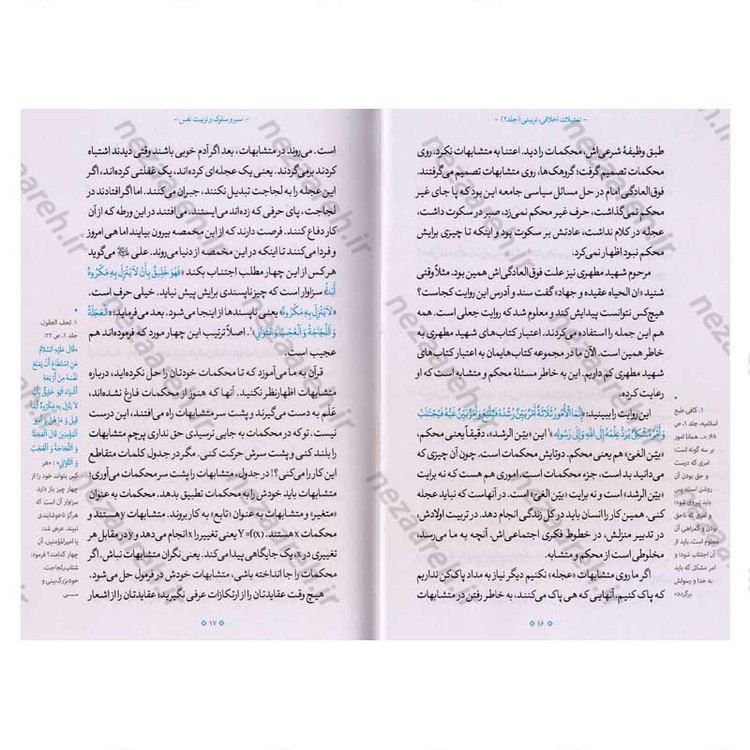 - تمثیلات اخلاقی، تربیتی (جلد۲) -
طبق وظیفهٔ شرعی‌اش، محکمات را دید. اعتنا به متشابهات نکرد، روی
محکمات تصمیم گرفت؛ گروهک‌ها، روی متشابهات تصمیم می‌گرفتند.
فوق‌العادگی امام در حل مسائل سیاسی جامعه این بود که پا جای غیر
محکم نمی‌گذاشت، حرف غیر محکم نمی‌زد، صبر در سکوت داشت،
عجله در کلام نداشت، عادتش بر سکوت بود و اینکه تا چیزی برایش
محکم نبود اظهار نمی‌کرد.
مرحوم شهید مطهری نیز علت فوق‌العادگی‌اش همین بود. مثلاً وقتی
شنید «ان الحیاه عقیده و جهاد» گفت سند و آدرس این روایت کجاست؟
هیچ‌کس نتوانست پیدایش کند و معلوم شد که روایت جعلی است. همه
هم این جمله را استفاده می‌کردند. اعتبار کتاب‌های شهید مطهری به
خاطر همین است. الآن ما در مجموعه کتاب‌هایمان به اعتبار کتاب‌های
شهید مطهری کم داریم. به این خاطر مسئلهٔ محکم و متشابه است که او
رعایت کرده.
این روایت را ببینید: «إِنَّمَا الْأُمُورُ ثَلَاثَةٌ أَمْرٌ بَيِّنٌ رُشْدُهُ فَيُتَّبَعُ وَ أَمْرٌ بَيِّنٌ غَيُّهُ فَيُجْتَنَبُ
وَ أَمْرٌ مُشْكِلٌ يُرَدُّ عِلْمُهُ إِلَى اللَّهِ وَ إِلَى رَسُولِهِ»۱ این «بیّن الرشد»، دقیقاً یعنی محکم،
«بیّن الغیّ» هم یعنی محکم، دوتایش محکمات است. چون آن چیزی که
می‌دانید بد است، جزء محکمات است. اموری هم هست که نه برایت
«بیّن الرشد» است و نه برایت «بیّن الغی» است. در آنهاست که نباید عجله
کنی. همین کار را انسان باید در کل زندگی انجام دهد. در تربیت اولادش،
در تدبیر منزلش، در خطوط فکری اجتماعی‌اش، آنچه به ما می‌رسد،
مخلوطی است از محکم و متشابه.
اگر ما روی متشابهات «عجله» نکنیم دیگر نیاز به مداد پاک‌کن نداریم
که پاک کنیم. آنهایی که هی پاک می‌کنند، به خاطر رفتن در متشابهات
۱. کافی طبع
اسلامیه، جلد ۱، ص
۶۸: «... همانا امور
بر سه گونه است:
امری که درست
و حق بودن آن
روشن است، پس
باید پیروی شود؛
و امری که ناحق
بودن و گمراهی آن
معلوم است، باید از
آن اجتناب شود؛ و
امر مشکل که باید
به خدا و رسولش
برگردد»
۱۶
- سیر و سلوک و تربیت نفس -
است. می‌روند در متشابهات، بعد اگر آدم خوبی باشند وقتی دیدند اشتباه
کردند برمی‌گردند. یعنی یک عجله‌ای کرده‌اند، یک غفلتی کرده‌اند، اگر
این عجله را به لجاجت تبدیل نکنند، جبران می‌کنند. اما اگر افتادند در
لجاجت، پای حرفی که زده‌اند می‌ایستند، می‌افتند در این ورطه که از آن
کار دفاع کنند. فرصت دارند که از این مخمصه بیرون بیایند اما هی امروز
و فردا می‌کنند تا اینکه در این مخمصه از دنیا می‌روند. علی می‌گوید
هر کس از این چهار مطلب اجتناب بکند «فَهُوَ خَلِيقٌ بِأَنْ لَا يَنْزِلَ بِهِ مَكْرُوهٌ
أَبَداً» سزاوار است که چیز ناپسندی برایش پیش نیاید. خیلی حرف است.
«لَا يَنْزِلَ بِهِ مَكْرُوهٌ» یعنی ناپسندها از اینجا می‌شود. بعد می‌فرماید: «الْعَجَلَةُ
وَ اللَّجَاجَةُ وَ الْعُجْبُ وَ التَّوَانِي»۱. اصلاً ترتیب این چهار مورد که فرموده‌اند هم
عجیب است.
قرآن به ما می‌آموزد که تا محکمات خودتان را حل نکرده‌اید، درباره
متشابهات اظهارنظر نکنید. آنها که هنوز از محکمات فارغ نشده‌اند،
عَلَم به دست می‌گیرند و پشت سر متشابهات راه می‌افتند، این درست
نیست. تو که در محکمات به جایی نرسیدی حق نداری پرچم متشابهات
را بلند کنی و پشت سرش حرکت کنی. مگر در جدول کلمات متقاطع
این کار را می‌کنی؟! در جدول، متشابهات را پشت سر محکمات می‌آوری؛
متشابهات باید خودش را به محکمات تطبیق بدهد. محکمات به عنوان
«متغیر» و متشابهات به عنوان «تابع» به کار بروند. متشابهات y هستند و
محکمات x هستند. Y=f(x) یعنی تغییر را x انجام می‌دهد و y در مقابل هر
تغییری در x، یک جایگاهی پیدا می‌کند. یعنی نگران متشابهات نباش. اگر
محکمات را جا انداخته باشی، متشابهات خودش در فرمول حل می‌شود.
هیچ وقت عقایدتان را از ارتکازات عرفی نگیرید؛ عقایدتان را از اشعار
۱. تحف العقول،
جلد ۱، ص ۲۲۲:
«قَالَ عَلَيْهِ السَّلَامُ
مَنِ اسْتَطَاعَ أَنْ يَمْنَعَ
نَفْسَهُ مِنْ أَرْبَعَةِ
أَشْيَاءَ فَهُوَ خَلِيقٌ بِأَنْ
لَا يَنْزِلَ بِهِ مَكْرُوهٌ أَبَداً
قِيلَ وَ مَا هُنَّ يَا أَمِيرَ
الْمُؤْمِنِينَ قَالَ الْعَجَلَةُ
وَ اللَّجَاجَةُ وَ الْعُجْبُ
وَ التَّوَانِي» ؛ «هر
کس بتواند خود را از
چهار چیز باز دارد،
سزاوار آن است که
هرگز ناخوشایندی
نبیند. عرض شد:
یا امیرالمؤمنین، آن
چهار کدامند؟ فرمود:
شتاب، لجاجت،
خودبزرگ‌بینی و
۱۷
nezareh.ir